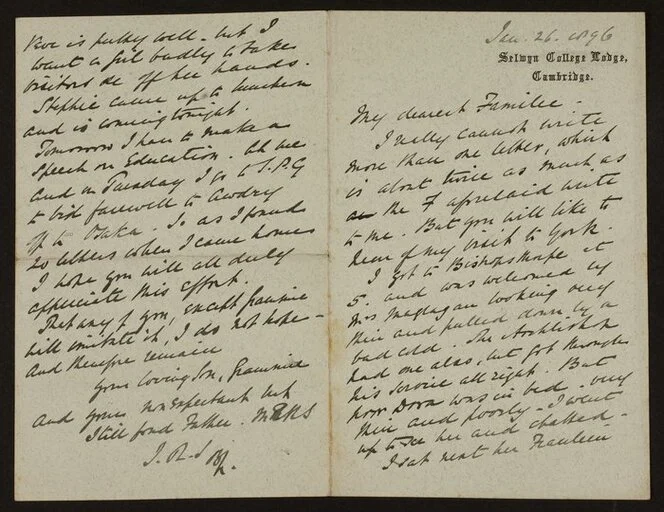 Jan. 26. 1896
Selwyn College Lodge,
Cambridge.
My dearest Familee -
I really cannot write
more than one letter, which
is about twice as much as
the F aforesaid write
to me. But you will like to
hear of my visit to York.
I got to Bishopsthorpe at
5. and was welcomed by
Mrs Maclagan looking very
thin and pulled down by a
bad cold. The Archbishop
had one also, but got through
his service all right. But
poor Dora was in bed - very
thin and poorly - I went
up to see her and chatted -
I sat next her Fraulein
is pretty well - but I
want a girl badly to take
visitors &c off her hands.
Stephie came up to luncheon
and is coming tonight.
Tomorrow I have to make a
Speech on Education.
and on Tuesday I go to S.P.G
to bid farewell to Awdry
off to Osaka. So as I found
20 letters when I came home
I hope you will all duly
appreciate this effort.
That any of you, except Grannie
will imitate it, I do not hope -
And therefore remain
your loving Son, Grannie
And yours nonexpectant but
still fond Father.
J. R. S